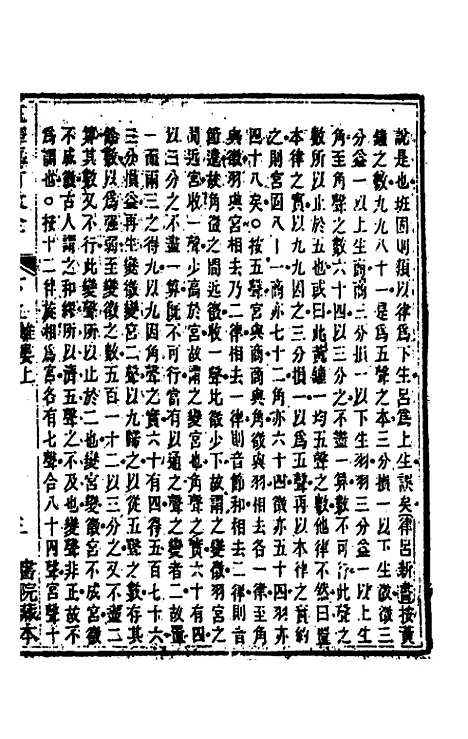 說是也班固則類以律為下生呂為上生誤矣律呂新書按黃
鐘之數九九八十一是為五聲之本三分損一以下生徵徵三
分益一以上生商商三分損一以下生羽羽三分益一以上生
角至角聲之數六十四以三分之不盡一算數不可行此聲之
數所以止於五也或曰此黃鐘一均五聲之數他律不然曰置
本律之實以九九因之三分損一以為五聲再以本律之實約
之則宮固八十一商亦七十二角亦六十四徵亦五十四羽亦
四十八矣○按五聲宮與商商與角徵與羽相去各一律至角
與徵羽與宮相去乃二律相去一律則音節和相去二律則音
節遠故角徵之間近徵收一聲比徵少下故謂之變徵羽宮之
間近宮收一聲少高於宮故謂之變宮也角聲之實六十有四
以三分之不盡一算既不可行當有以通之聲之變者二故置
一而兩三之得九以九因角聲之實六十有四得五百七十六
三分損益再生變徵變宮二聲以九歸之以從五聲之數存其
餘數以為強弱至變徵之數五百一十二以三分之又不盡二
算其數又不行此變聲所以止於二也變宮變徵宮不成宮徵
不成徵古人謂之和繆所以濟五聲之不及也變聲非正故不
為調也○按十二律旋相為宮各有七聲合八十四聲宮聲十
雜變上
書院藏本